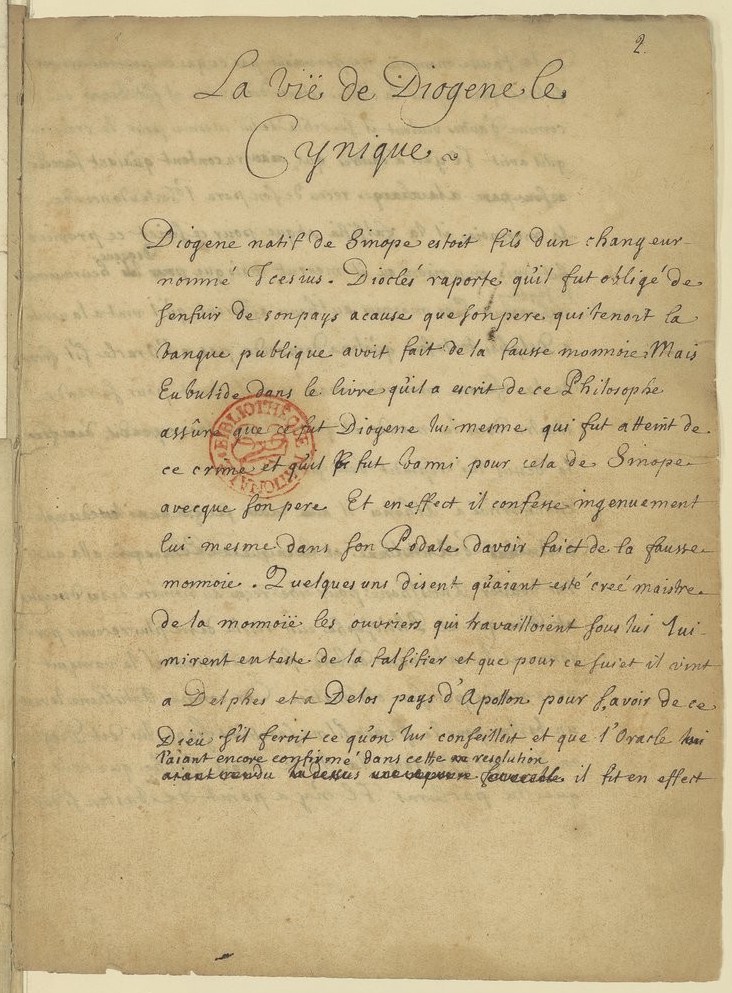 2.
La vië de Diogene le
Cynique
Diogene natif de Sinope estoit fils dun changeur
nommé Icesius. Dioclés raporte qu'il fut obligé de
senfuir de son pays acause que son pere qui tenoit la
banque publique avoit fait de la fausse monnoie. Mais
Eubulide dans le livre qu'il a escrit de ce Philosophe
assûre que ce fut Diogene lui mesme qui fut atteint de
ce crime et qu'il fut banni pour cela de Sinope
avecque son pere Et en effect il confesse ingenuement
lui mesme dans son Podale davoir faict de la fausse
monnoie. Quelques uns disent qu'aiant esté creé maistre
de la monnoië les ouvriers qui travailloient sous lui lui
mirent en teste de la falsifier et que pour ce sujet il vint
a Delphes et a Delos pays d'Apollon pour savoir de ce
Dieu s'il feroit ce qu'on lui conseilloit et que l'Oracle lui
l'aiant encore confirmé dans cette resolution
aiant rendu la dessus une favorable il fit en effect
BIBLIOTHEQUE NATIONALE